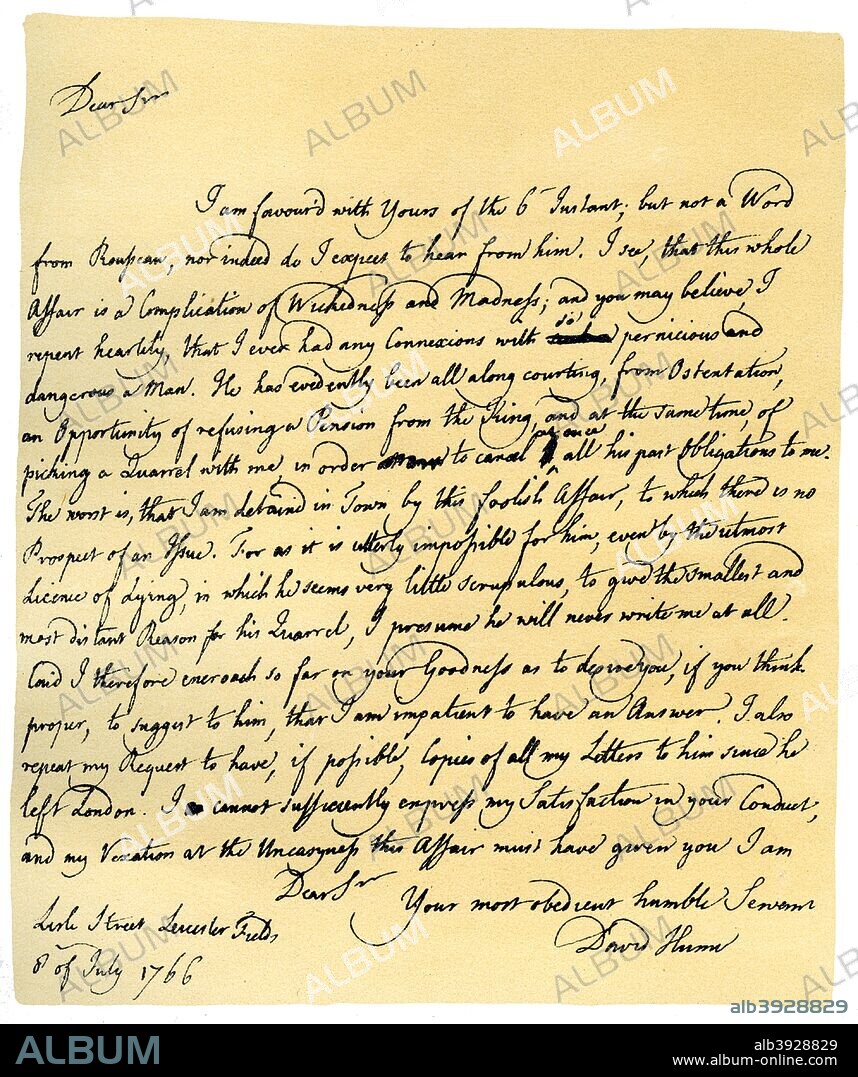 Dear Sir
I am favour'd with Yours of the 6th Instant; but not a Word
from Rousseau, nor indeed do I expect to hear from him. I see, that this whole
Affair is a Complication of Wickedness and Madness; and you may believe, I
repent heartily, that I ever had any Connexions with so pernicious and
dangerous a Man. He has evidently been all along courting, from Ostentation,
an Opportunity of refusing a Pension from the King, and at the same time, of
picking a Quarrel with me, in order to cancel at once all his past Obligations to me.
The worst is, that I am detaind in Town by this foolish Affair, to which there is no
Prospect of an Issue. For as it is utterly impossible for him, even by the utmost
Licence of Lying, in which he seems very little scrupulous, to give the smallest and
most distant Reason for his Quarrel, I presume he will never write me at all.
Coud I therefore encroach so far on your Goodness as to desire you, if you think
proper, to suggest to him, that I am impatient to have an Answer. I also
repeat my Request to have, if possible, Copies of all my Letters to him since he
left London. I cannot sufficiently express my Satisfaction in your Conduct,
and my Vexation at the Uneasyness this Affair must have given you I am
Dear Sir
Your most obedient humble Servant
David Hume
Lisle Street Leicester Fields
8th of July 1766
ALBUM
alb3928829
ALBUM
alb3928829
www.album-online.com